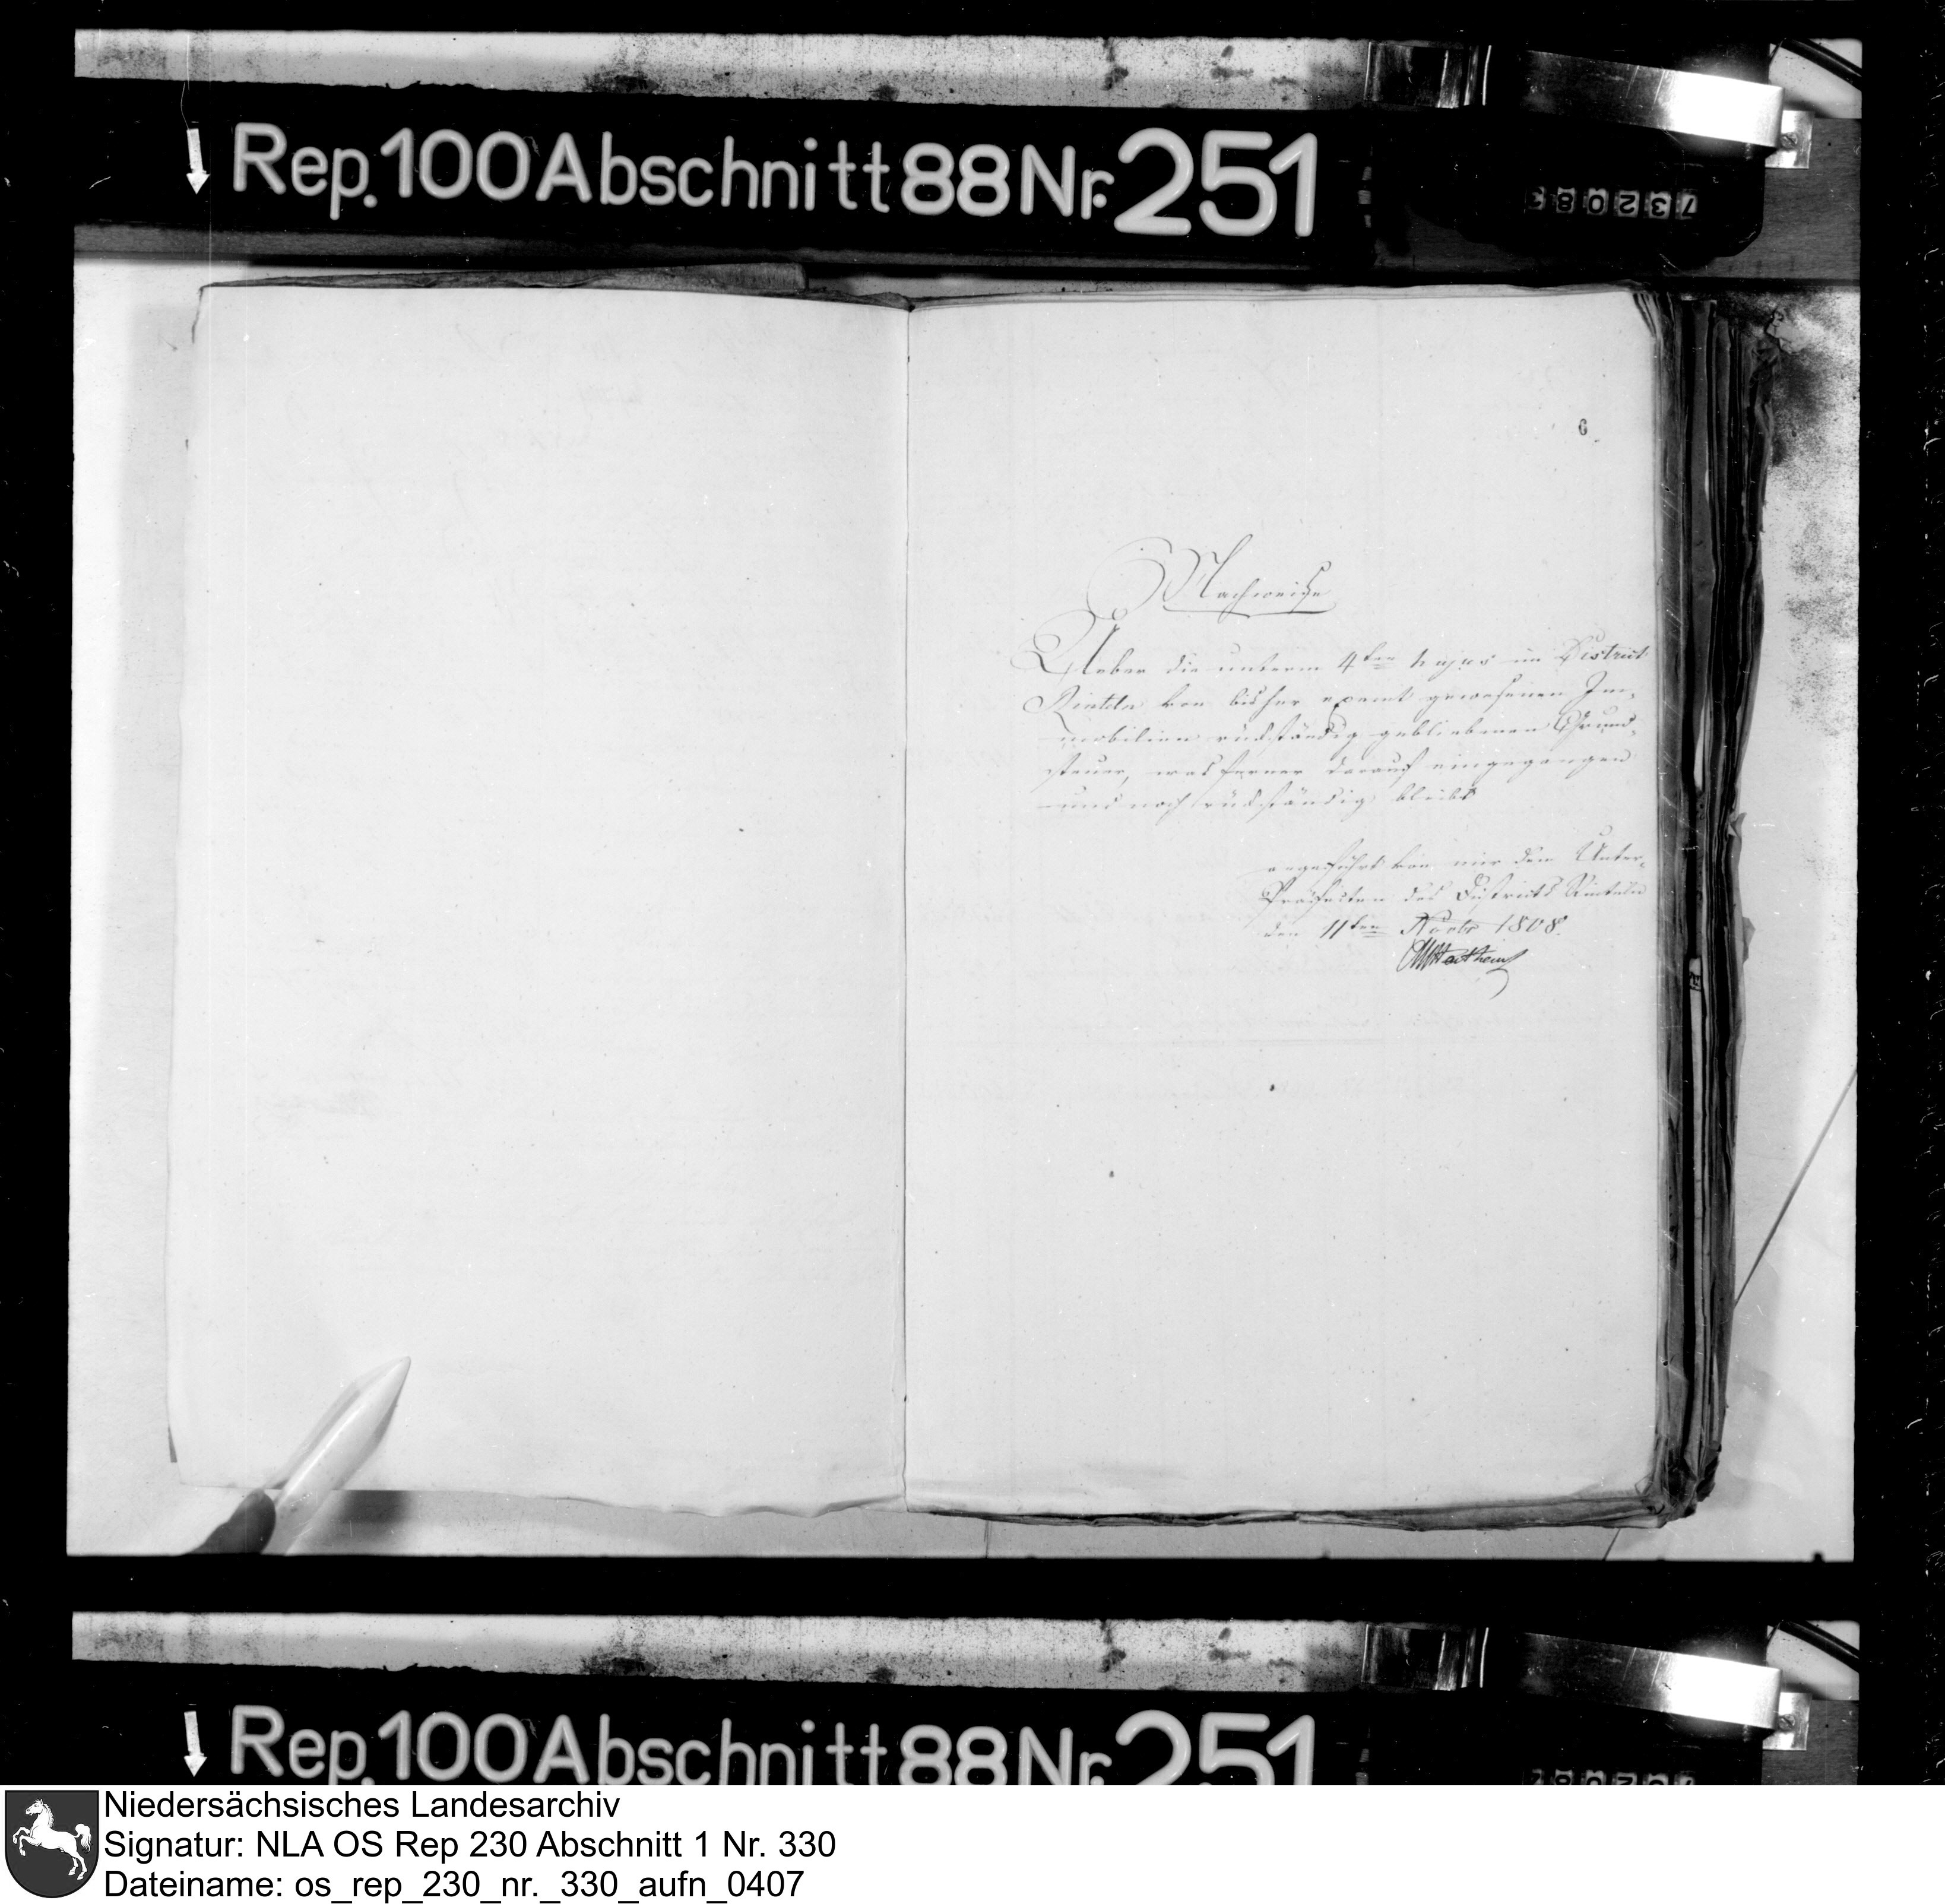 Rep. 100 Abschnitt 88 Nr. 251
732083
6
Nachweise
Ueber die unterm 4ten hujus im District
Rinteln von bisher exemt gewesenen Im-
mobilien rückständig gebliebenen Grund-
steuer, was ferner darauf eingegangen
und noch rückständig bleibt
von mir dem Unter-
Præfecten des Districts Rinteln
den 11ten Novbr 1808.
Rep. 100 Abschnitt 88 Nr. 251
Niedersächsisches Landesarchiv
Signatur: NLA OS Rep 230 Abschnitt 1 Nr. 330
Dateiname: os_rep_230_nr._330_aufn_0407